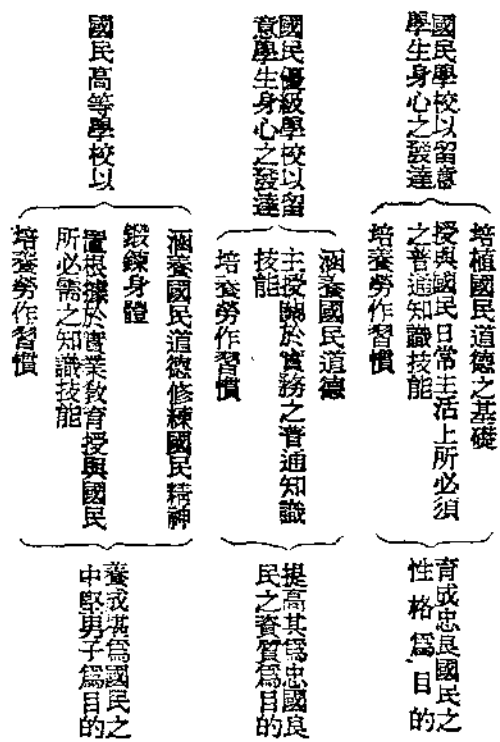 國民學校以留意
學生身心之發達
培植國民道德之基礎
授與國民日常主活上所必須
之普通知識技能
培養勞作習慣
育成忠良國民之
性格爲目的
國民優級學校以留
意學生身心之發達
涵養國民道德
主授關於實務之普通知識
技能
培養勞作習慣
提高其爲忠國良
民之資質爲目的
國民高等學校以
涵養國民道德修練國民精神
鍛鍊身體
置根據於實業敎育授與國民
所必需之知識技能
培養勞作習慣
養成堪爲國民之
中堅男子爲目的